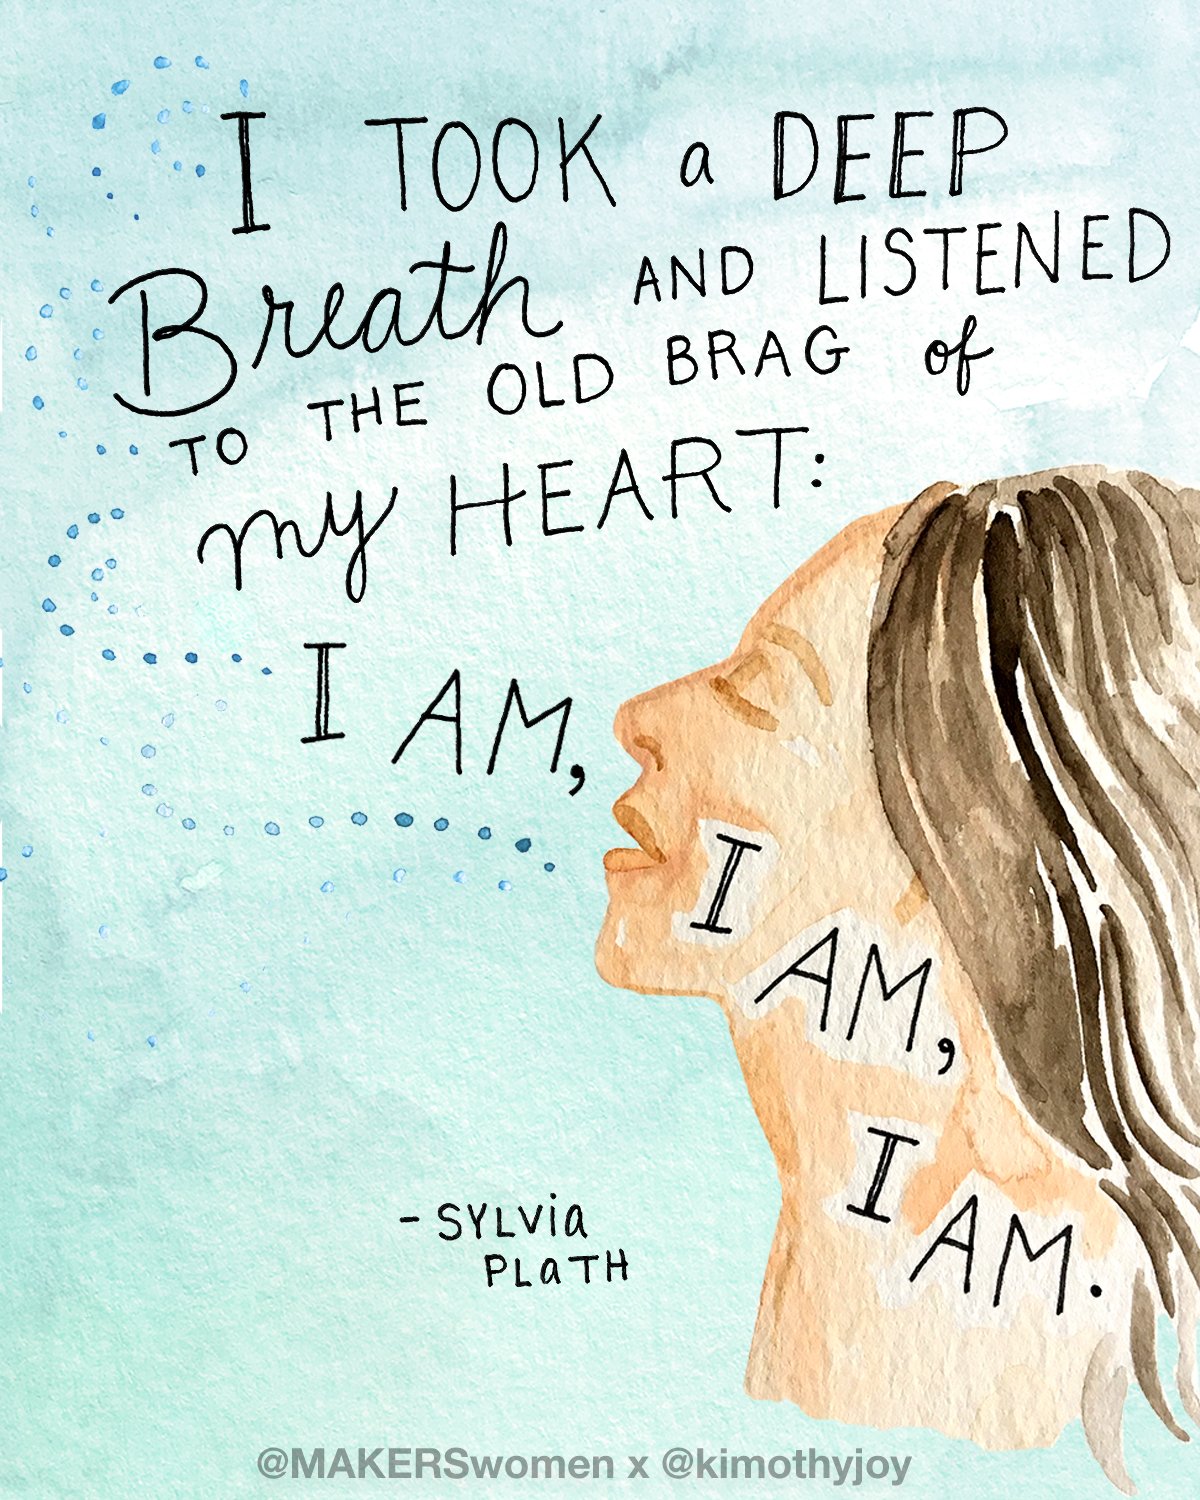 I TOOK a DEEP
Breath AND LISTENED
TO THE OLD BRAG of
my HEART:
I AM,
I
AM,
I
AM.
- SYLVia
PLaTH
@MAKERSwomen x @kimothyjoy